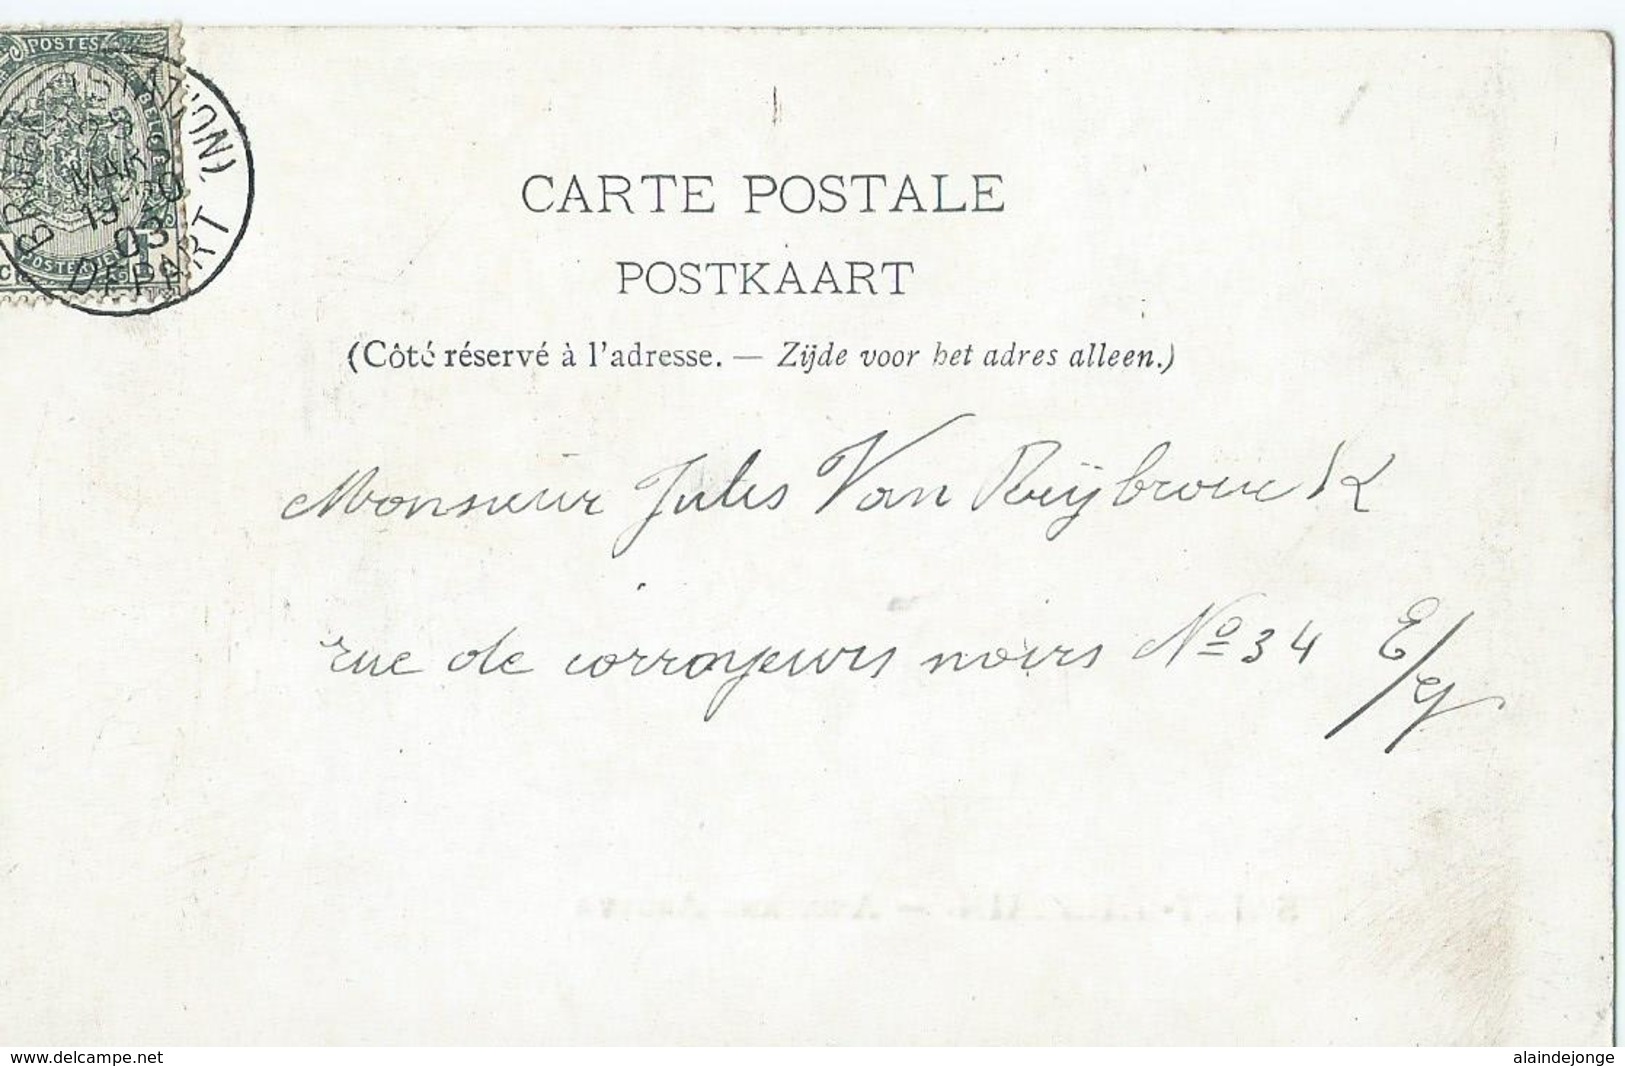 POSTES
BELGIQUE
BRUGES (STATION)
MAR
19-20
03
DEPART
CARTE POSTALE
POSTKAART
(Côté réservé à l'adresse. — Zijde voor het adres alleen.)
Monsieur Jules Van Reijbrouck
rue de corroyeurs noirs No 34 E/V
www.delcampe.net
alaindejonge